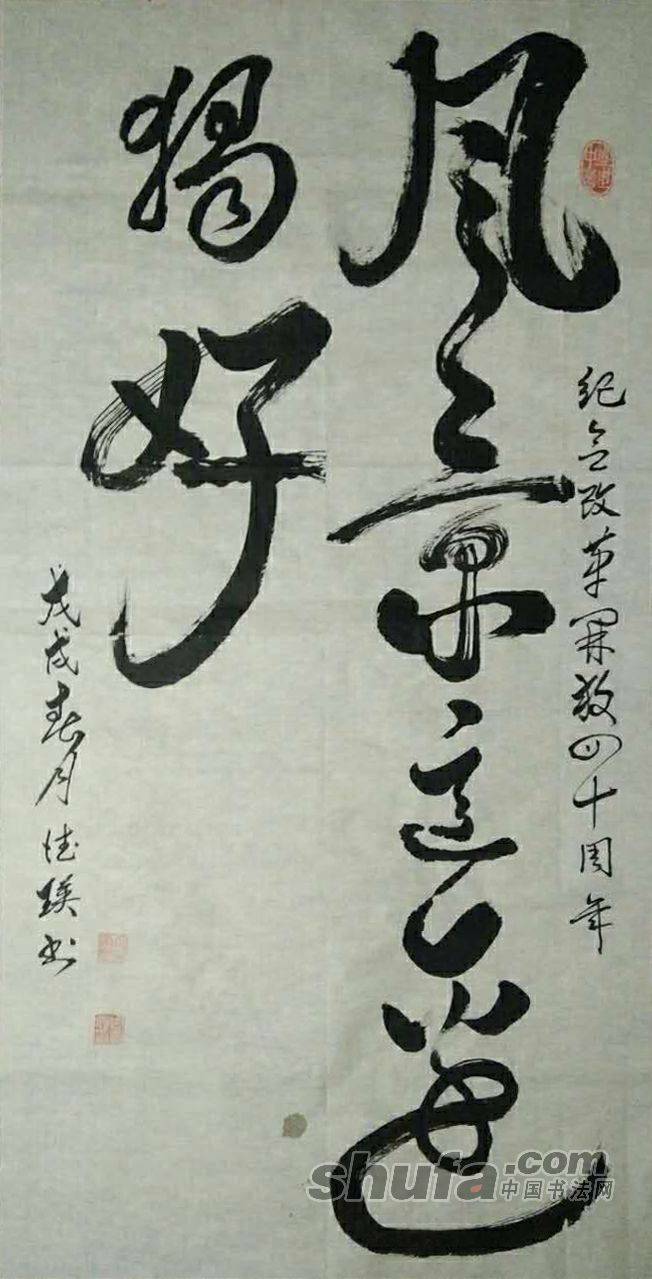 纪念改革开放四十周年
風景這邊
獨好
戊戌春月 德瑛书
shufa.com
中国书法网